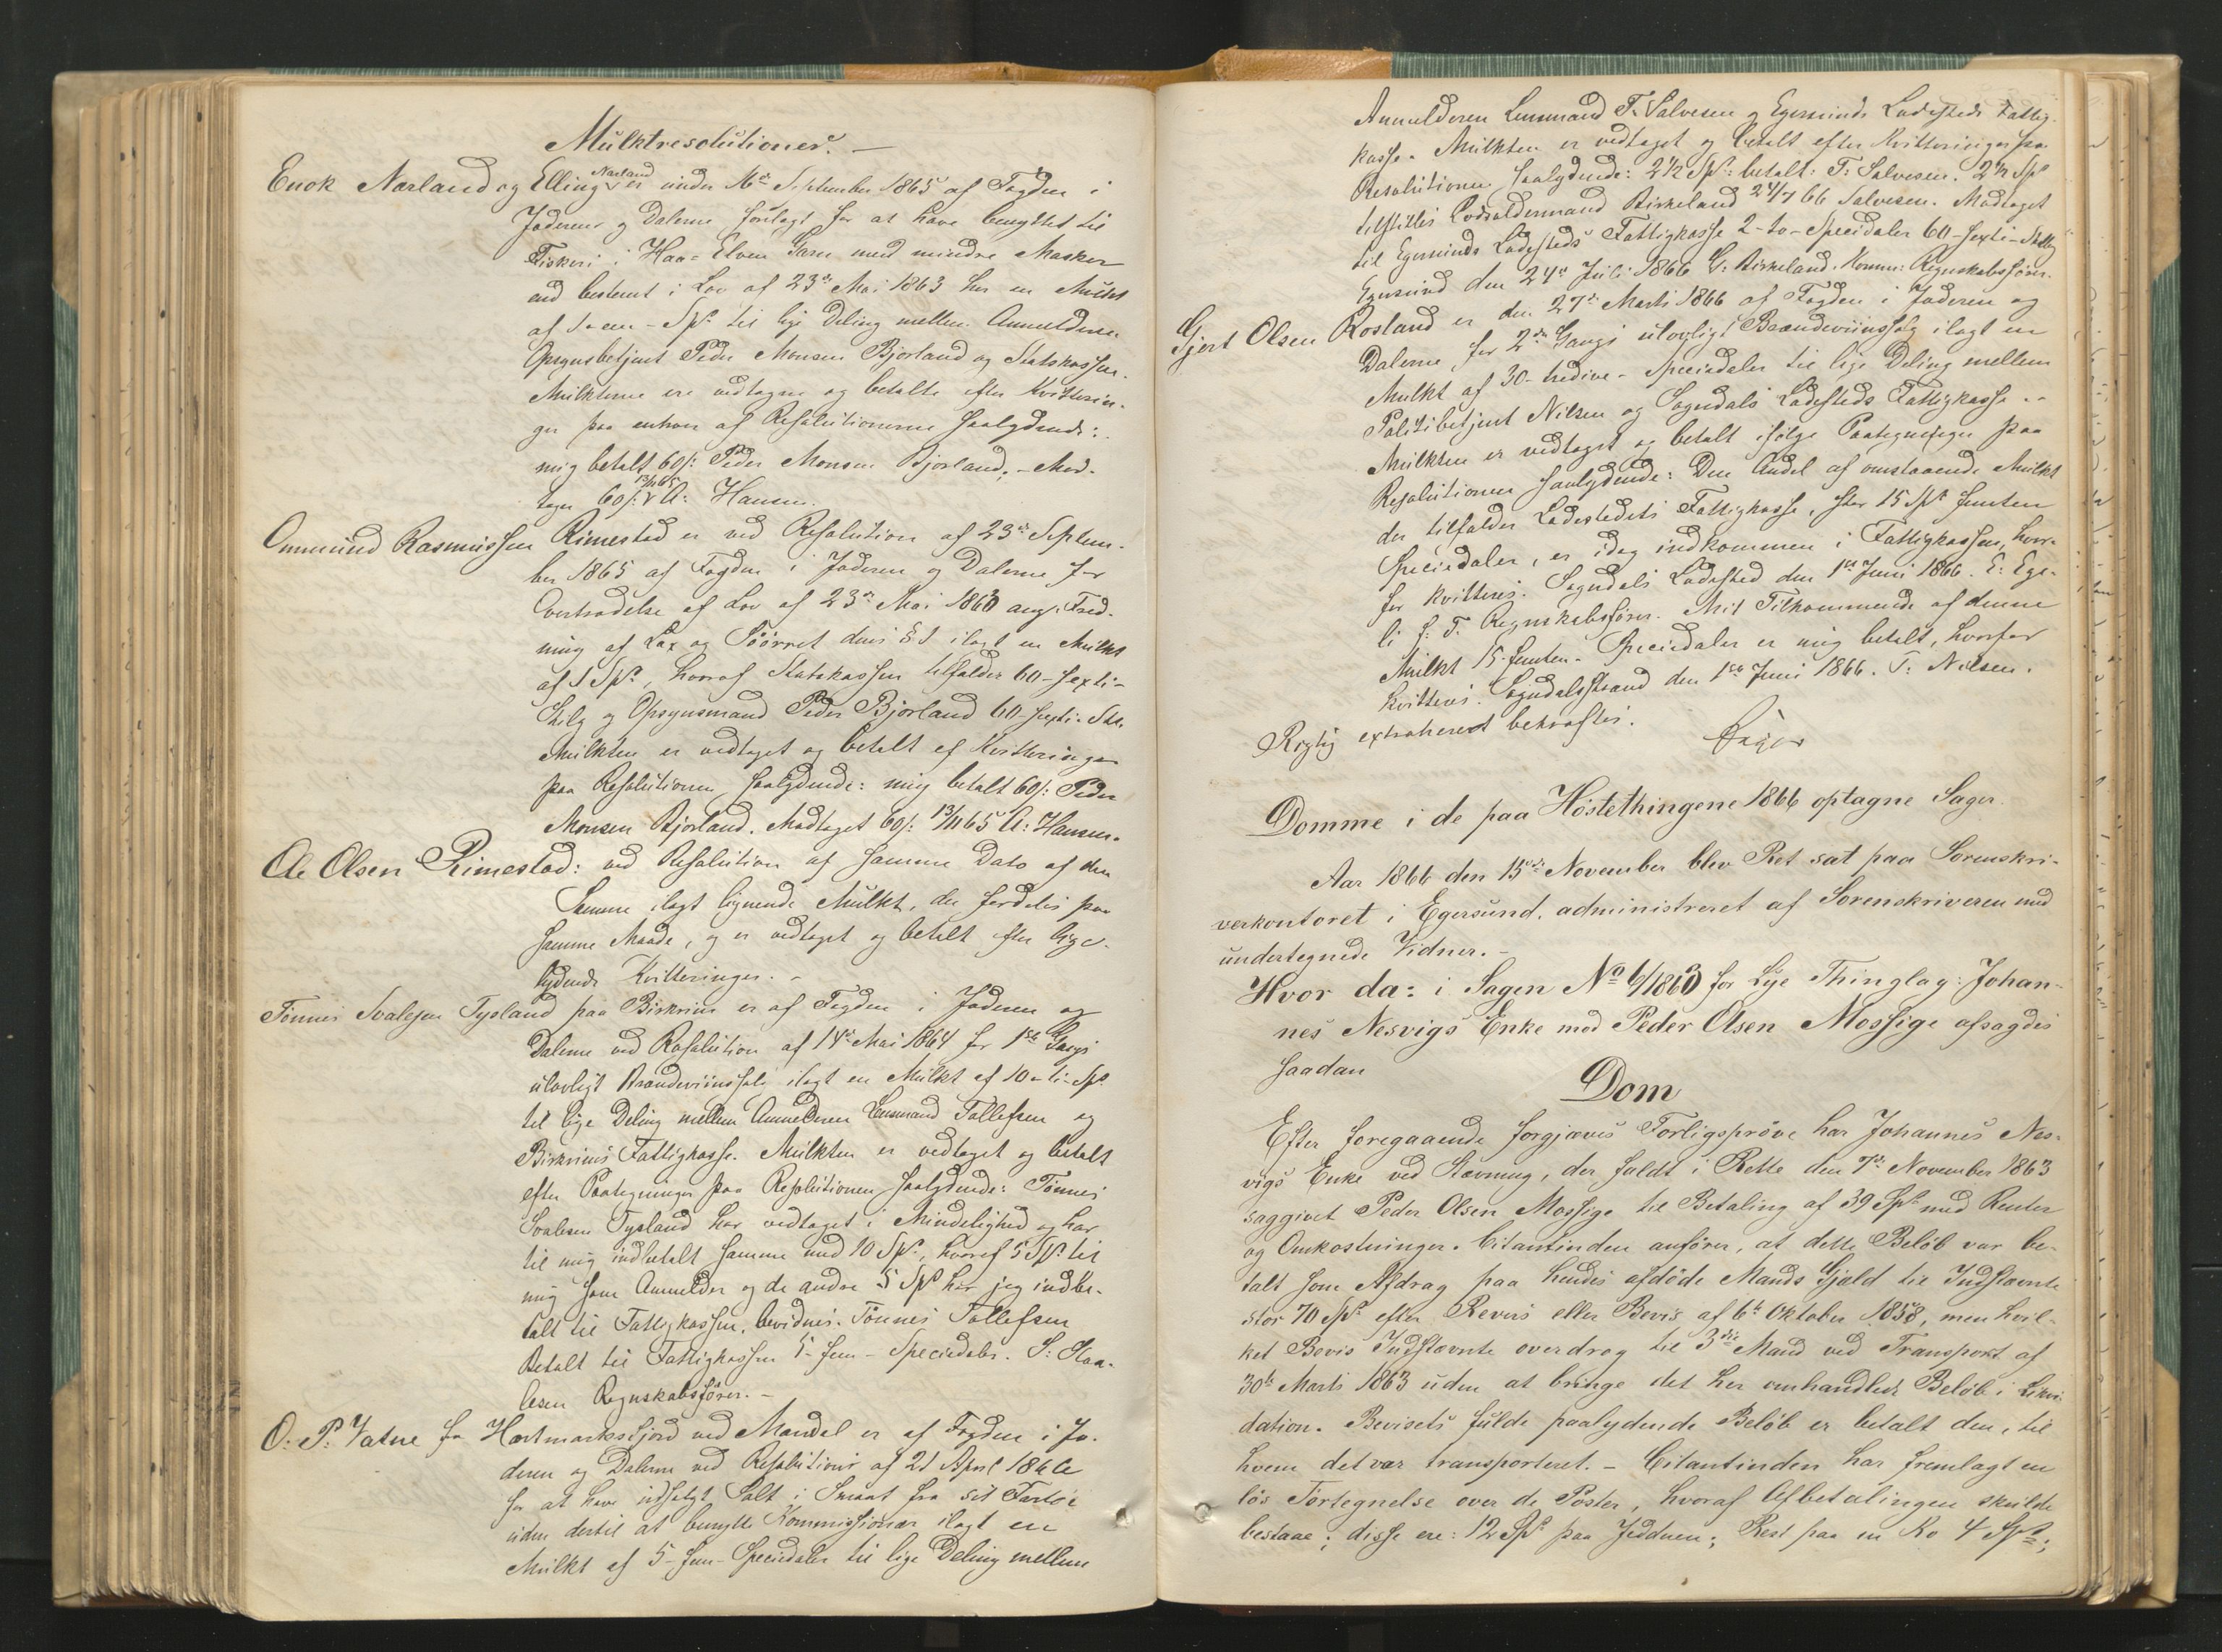 Mulktresolutioner. –
Enok Nærland og Elling Nærland er under 16de September 1865 af Fogden i
Jæderen og Dalerne forelagt for at have benyttet til
Fiskeri i Haa-Elven Garn med mindre Masker
end bestemt i Lov af 23de Mai 1863 hver en Mulkt
af 1-een-Spd. til lige Deling mellem Anmelderen
Opsynsbetjent Peder Monsen Bjorland og Statskassen.
Mulkterne ere vedtagne og betalte efter Kvitterin-
ger paa enhver af Resolutionerne saalydende:
mig betalt 60 s: Peder Monsen Bjorland, – Mod-
taget 60 s: 13/11 65 A: Hansen.
Ommund Rasmussen Rimestad er ved Resolution af 23de Septem-
ber 1865 af Fogden i Jæderen og Dalerne for
Overtrædelse af Lov af 23de Mai 1863 ang. Fred-
ning af Lax og Søørret dens § 1 ilagt en Mulkt
af 1 Spd., hvoraf Statskassen tilfalder 60-sexti-
Skilg og Opsynsmand Peder Bjorland 60-sexti-Sk.
Mulkten er vedtaget og betalt ef Kvitteringer
paa Resolutionen saalydende: mig betalt 60 s: Peder
Monsen Bjorland. Modtaget 60 s: 13/11 65 A: Hansen.
Ole Olsen Rimestad: ved Resolution af samme Dato af den
Samme ilagt lignende Mulkt, der fordeles paa
samme Maade, og er vedtaget og betalt efter lige-
lydende Kvitteringer. –
Tønnes Svalesen Tysland paa Birkrim er af Fogden i Jæderen og
Dalerne ved Resolution af 14de Mai 1864 for 1ste Gangs
ulovligt Brændeviinssalg ilagt en Mulkt af 10-ti-Spd.
til lige Deling mellem Anmelderen Lensmand Tollefsen og
Birkrims Fattigkasse. Mulkten er vedtaget og betalt
efter Paategninger paa Resolutionen saalydende: Tønnes
Svalesen Tysland har vedtaget i Mindelighed og har
til mig indbetalt samme med 10 Spd., hvoraf 5 Spd. til
mig som Anmelder og de andre 5 Spd. har jeg indbe-
talt til Fattigkassen, bevidnes. Tønnes Tollefsen
Betalt til Fattigkassen 5-fem-Speciedaler. S: Staa-
lesen Regnskabsfører. –
O. P. Vatne fra Hartmarksfjord ved Mandal er af Fogden i Jæ-
deren og Dalerne ved Resolution af 21 April 1866
for at have udsolgt Salt i Smaat fra sit Fartøi
uden dertil at benytte Kommissionær ilagt en
Mulkt af 5-fem-Speciedaler til lige Deling mellem
Anmelderen Lensmand T. Salvesen og Egersunds Ladesteds Fattig-
kasse. Mulkten er vedtaget og betalt efter Kvitteringer paa
Resolutionen saalydende: 2 1/2 Spd. betalt: T. Salvesen. 2 1/2 Spd
tilstilles Birkeland 24/7 66 Salvesen. Modtaget
til Egersunds Ladesteds Fattigkasse 2-to-Speciedaler 60-sexti-Skilg
Egersund den 24de Juli 1866 G. Birkeland. Komm: Regnskabsfører.
Gjert Olsen Rosland er den 27de Marts 1866 af Fogden i Jæderen og
Dalerne for 2den Gangs ulovligt Brændeviinssalg ilagt en
Mulkt af 30-tredive-Speciedaler til lige Deling mellem
Politibetjent Nilsen og Sogndals Ladesteds Fattigkasse. –
Mulkten er vedtaget og betalt ifølge Paategninger paa
Resolutionen saalydende: Den Andel af omstaaende Mulkt
der tilfalder Ladestedets Fattigkasse, stor 15 Spd. femten
Speciedaler, er idag indkommen i Fattigkassen, hvor-
for kvitteres. Sogndals Ladested den 1ste Juni 1866. E: Ege-
li f: T. Regnskabsfører. Mit Tilkommende af denne
Mulkt 15-femten-Speciedaler er mig betalt, hvorfor
kvitteres. Sogndalsstrand den 1ste Juni 1866. T: Nilsen.
Rigtig extraheret bekræftes.
Domme i de paa Høstethingene 1866 optagne Sager.
Aar 1866 den 15de November blev Ret sat paa Sorenskri-
verkontoret i Egersund, administreret af Sorenskriveren med
undertegnede Vidner. –
Hvor da: i Sagen No 6/1863 for Lye Thinglag: Johan-
nes Nesvigs Enke mod Peder Olsen Mossige afsagdes
saadan
Dom
Efter foregaaende forgjæves Forligsprøve har Johannes Nes-
vigs Enke ved Stævning, der faldt i Rette den 7de November 1863
saggivet Peder Olsen Mossige til Betaling af 39 Spd. med Renter
og Omkostninger. Citantinden anfører, at dette Beløb var be-
talt som Afdrag paa hendes afdøde Mands Gjæld til Indstævnte
stor 70 Spd. efter Revers eller Bevis af 6te Oktober 1858, men hvil-
ket Bevis Indstævnte overdrog til 3die Mand ved Transport af
30te Marts 1863 uden at bringe det her omhandlede Beløb i Likvi-
dation. Bevisets fulde paalydende Beløb er betalt den, til
hvem det var transporteret. – Citantinden har fremlagt en
løs Fortegnelse over de Poster, hvoraf Afbetalingen skulde
bestaae; disse ere: 12 Spd. paa Jædren; Rest paa en Ko 4 Spd.;